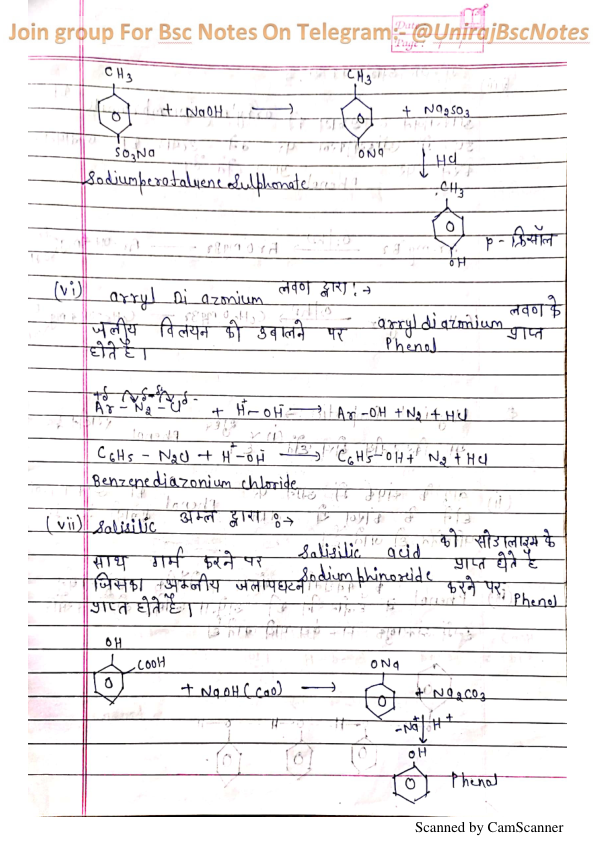 Join group For Bsc Notes On Telegram:- @UnirajBscNotes
CH3 CH3
+ NaOH ⟶ + Na2SO3
SO3Na ONa
↓ HCl
Sodiumperataluene Sulphonate
CH3
p - क्रिसॉल
OH
(vi) arryl Di azonium लवण द्वारा :→
arryldiazonium लवण के
जलीय विलयन को उबालने पर Phenol प्राप्त
होते है।
+δ δ- δ+ δ-
Ar - N2 - Cl + H+ - OH- ⟶ Ar-OH + N2 + HCl
C6H5 - N2Cl + H+-OH- ⟶ C6H5-OH + N2 + HCl
Benzenediazonium chloride
(vii) Salisilic अम्ल द्वारा :→
Salisilic acid को सोडालाइम के
साथ गर्म करने पर Sodiumphinoxide प्राप्त होते है
जिसका अम्लीय जलापघटन करने पर Phenol
प्राप्त होते है।
OH
COOH ONa
+ NaOH(CaO) ⟶ + Na2CO3
-Na+ ↓ H+
OH
Phenol
Scanned by CamScanner